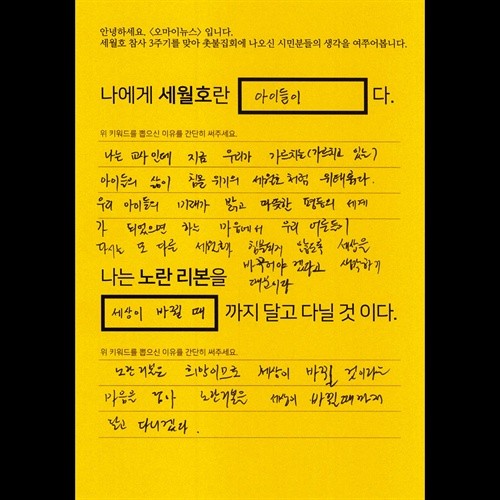 안녕하세요, <오마이뉴스> 입니다.
세월호 참사 3주기를 맞아 촛불집회에 나오신 시민분들의 생각을 여쭈어봅니다.
나에게 세월호란 아이들이 다.
위 키워드를 뽑으신 이유를 간단히 써주세요.
나는 교사인데 지금 우리가 가르치는(가르치고 있는)
아이들의 삶이 침몰 위기의 세월호처럼 위태롭다.
우리 아이들의 미래가 밝고 따뜻한 평등의 세계
가 되었으면 하는 마음에서 우리 어른들이
다시는 또 다른 세월호가 침몰되지 않도록 세상을
바꾸어야 겠다고 생각하기
때문이다
나는 노란 리본을
세상이 바뀔 때 까지 달고 다닐 것 이다.
위 키워드를 뽑으신 이유를 간단히 써주세요.
노란리본은 희망이므로 세상이 바뀔 것이라는
마음을 담아 노란리본을 세상이 바뀔때까지
달고 다니겠다.